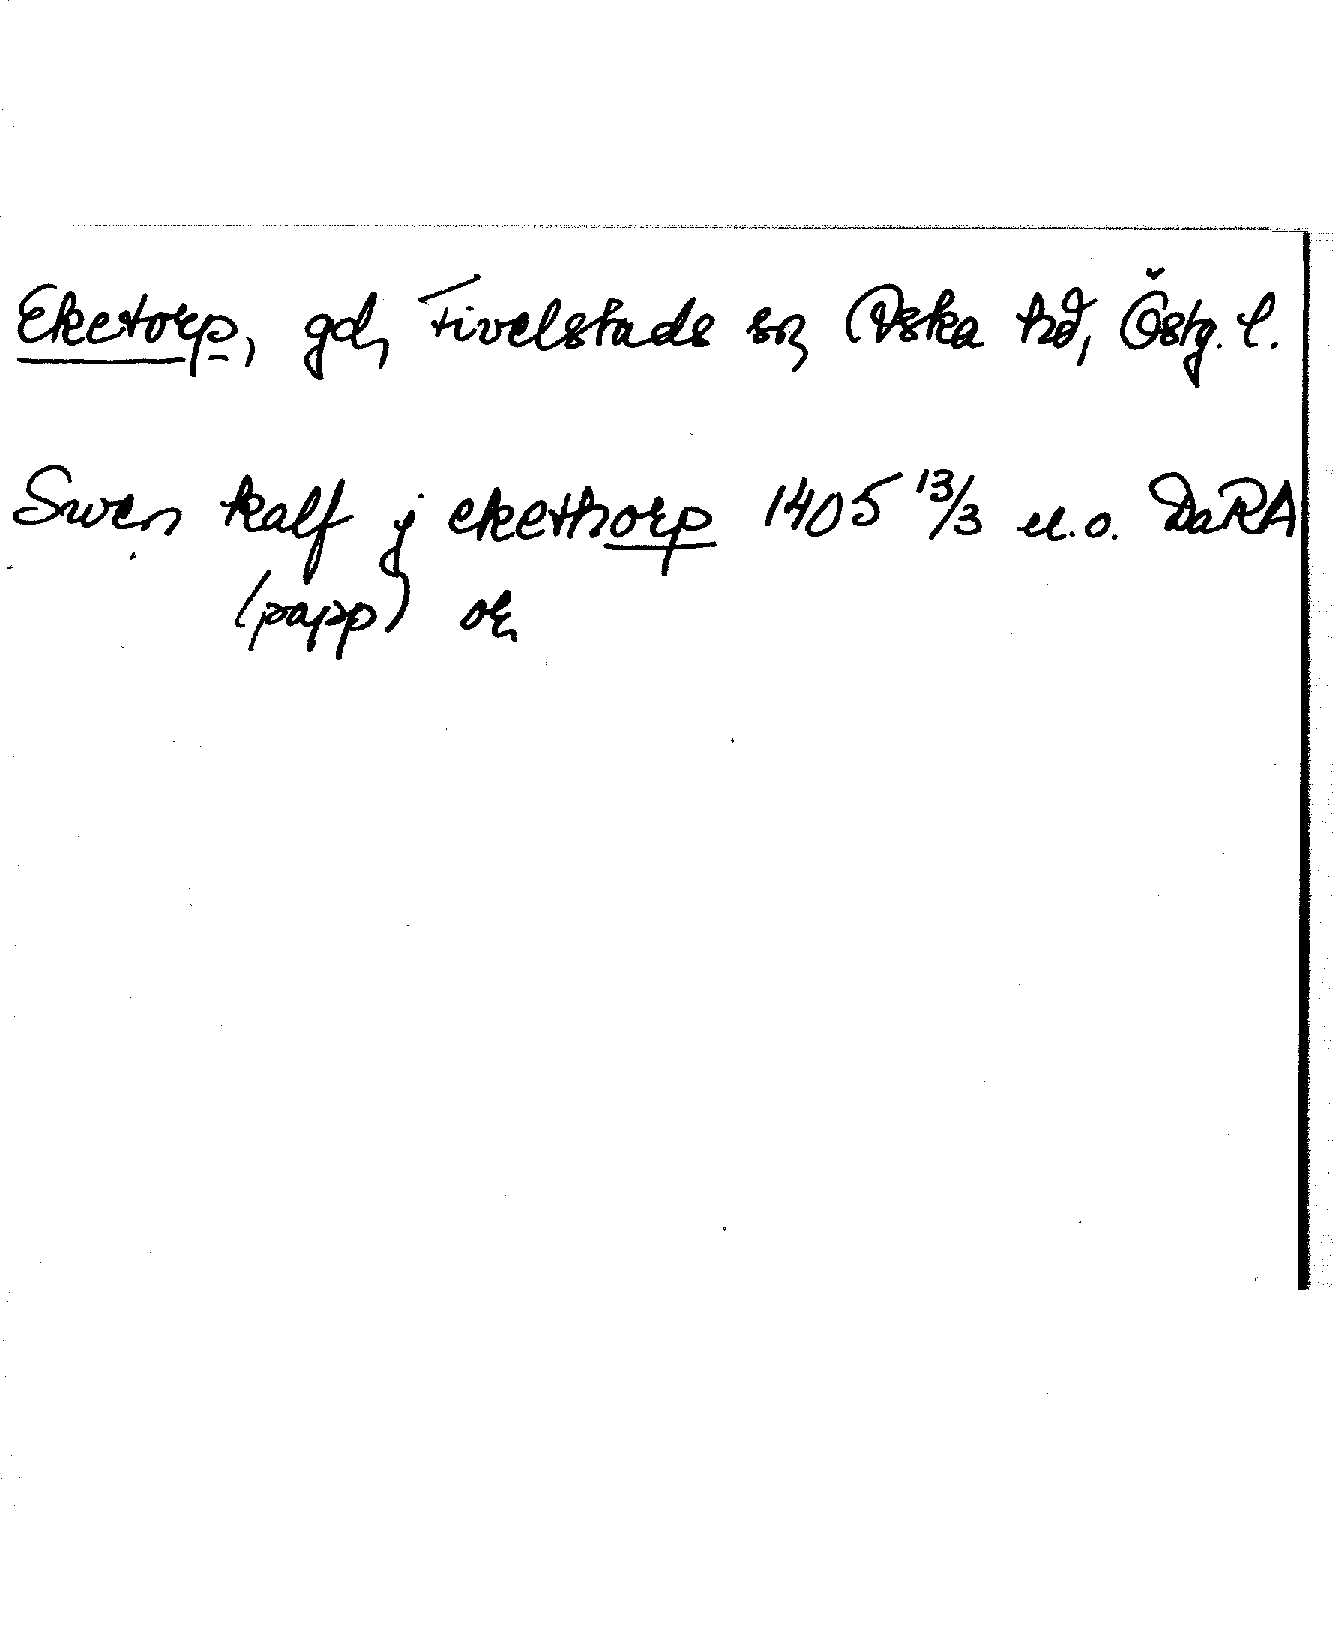 Eketorp, gd, Fivelstads sn, Aska hd, Östg. l.
Swen kalf j ekethorp 1405 13/3 u.o. DaRA
(papp) or,